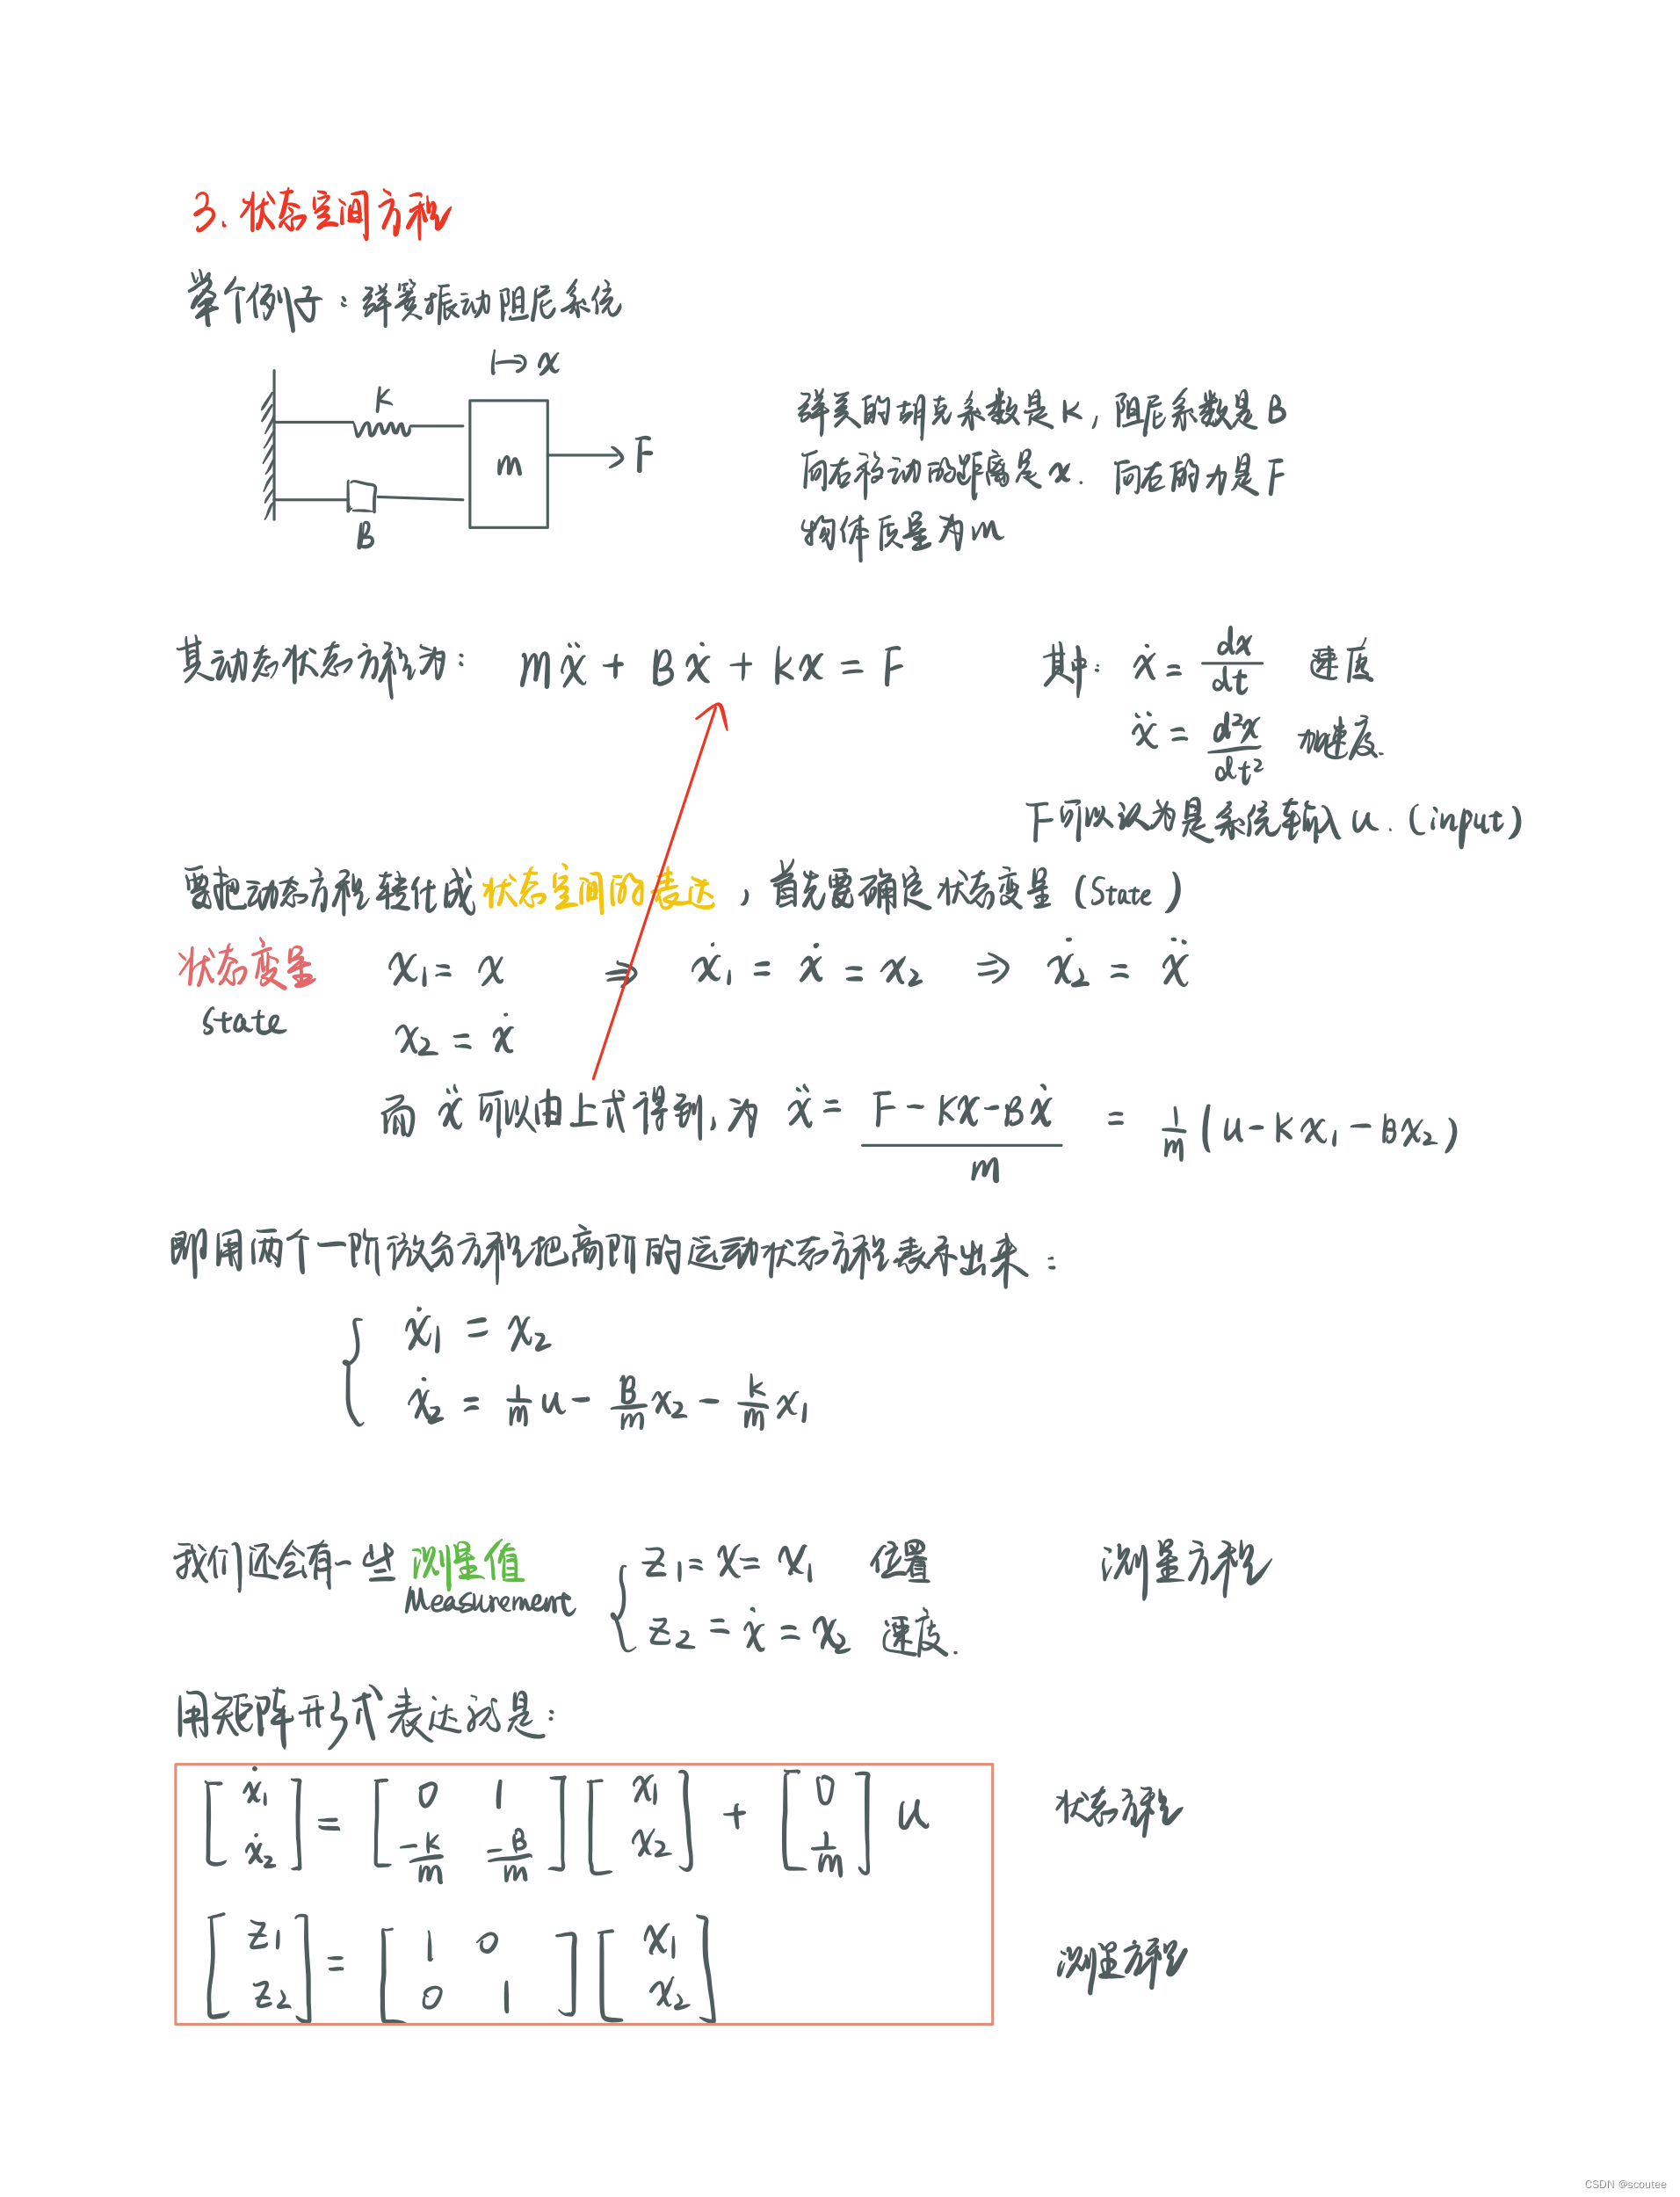 3. 状态空间方程
举个例子：弹簧振动阻尼系统
↦ x
K
m
→ F
B
弹簧的胡克系数是 K, 阻尼系数是 B
向右移动的距离是 x. 向右的力是 F
物体质量为 m
其动态状态方程为： mẍ + Bẋ + kx = F
其中: ẋ = dx/dt 速度
ẍ = d²x/dt² 加速度.
F可以认为是系统输入 u. (input)
要把动态方程转化成状态空间的表达，首先要确定状态变量 (State)
状态变量 x₁ = x ⇒ ẋ₁ = ẋ = x₂ ⇒ ẋ₂ = ẍ
State
x₂ = ẋ
而 ẍ 可以由上式得到, 为 ẍ = (F - Kx - Bẋ)/m = 1/m (u - Kx₁ - Bx₂)
即用两个一阶微分方程把高阶的运动状态方程表示出来：
{ ẋ₁ = x₂
ẋ₂ = 1/m u - B/m x₂ - k/m x₁
我们还会有一些 测量值 { z₁ = x = x₁ 位置 测量方程
Measurement
z₂ = ẋ = x₂ 速度.
用矩阵形式表达就是：
[ẋ₁; ẋ₂] = [0 1; -K/m -B/m] [x₁; x₂] + [0; 1/m] u 状态方程
[z₁; z₂] = [1 0; 0 1] [x₁; x₂] 测量方程
CSDN @scoutee